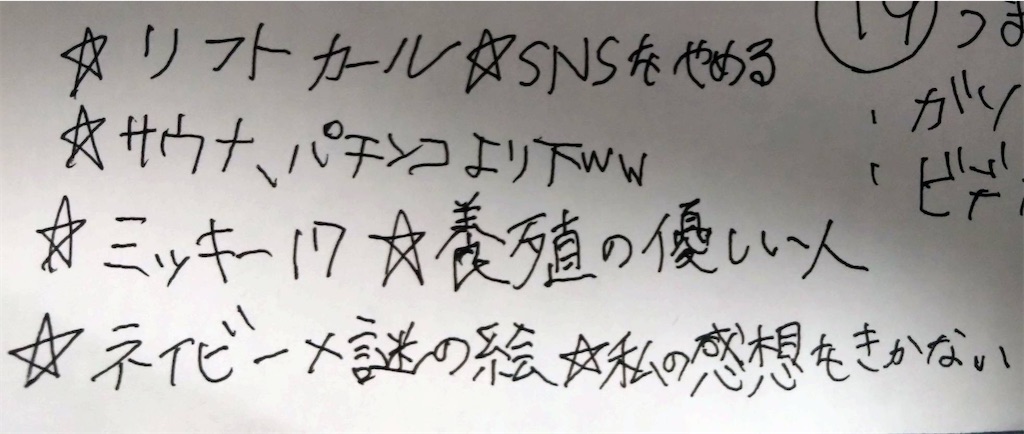 ☆リフトカール☆SNSをやめる
☆サウナ、パチンコより下ww
☆ミッキー17☆養殖の優しい人
☆ネイビー×謎の絵☆私の感想をきかない
⑲つま
・ガツ
・ビデ